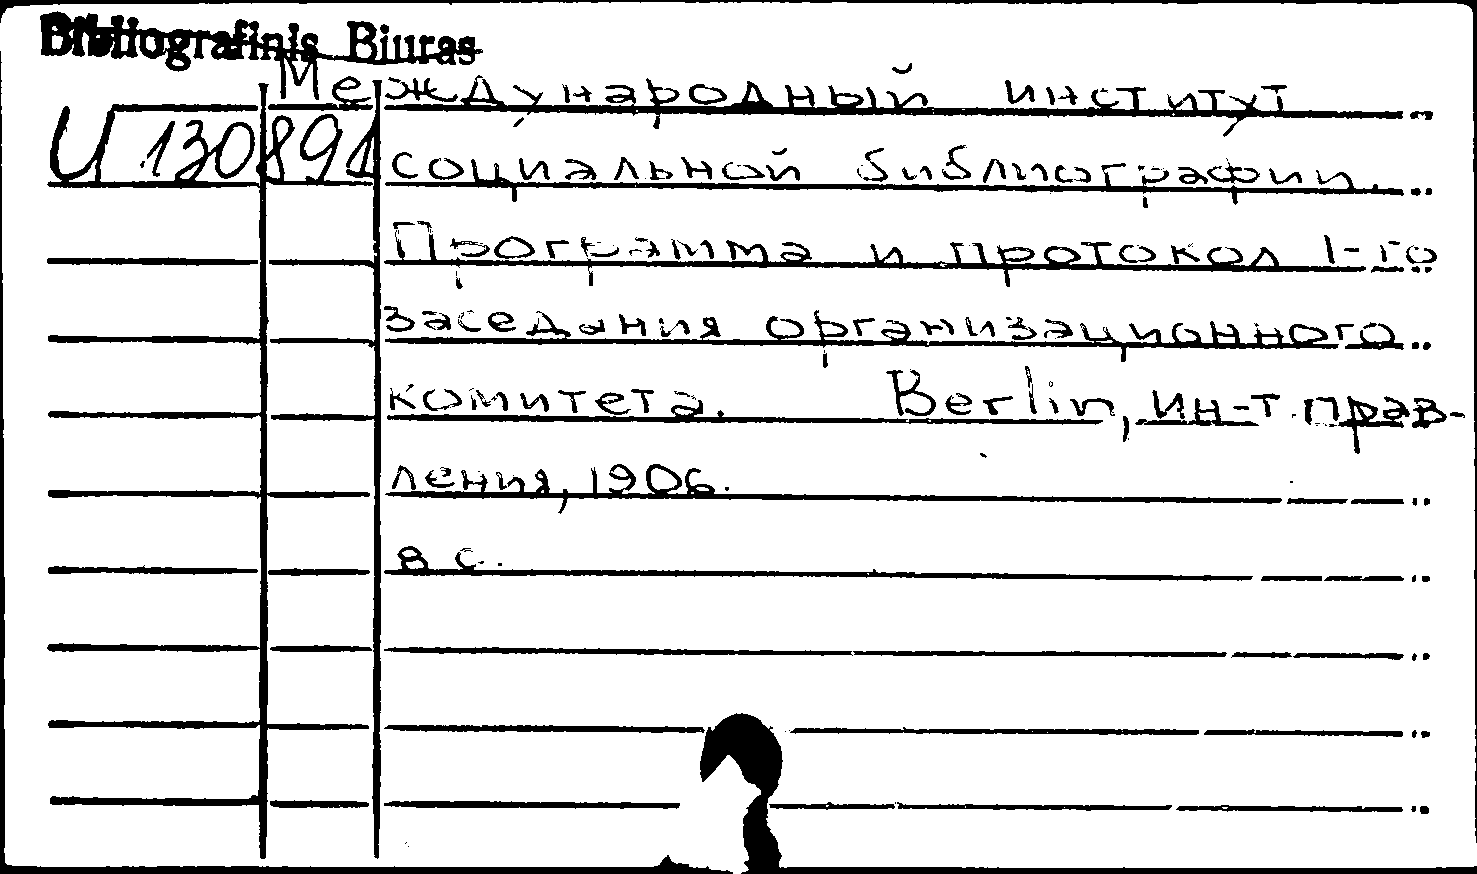 Bibliografinis Biuras
Международный институт
U 130891
социальной библиографии.
Программа и протокол 1-го
заседания организационного
комитета. Berlin, Ин-т прав-
ления, 1906.
8 с.